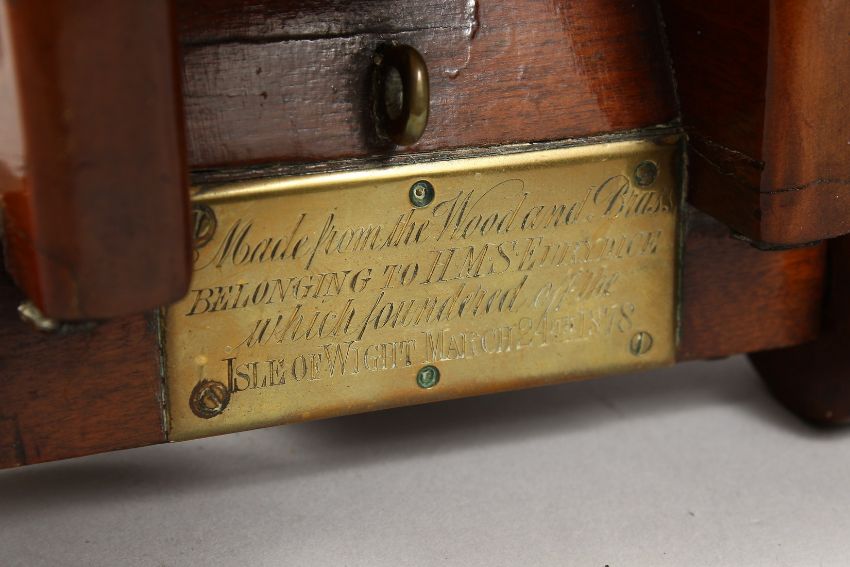 Made from the Wood and Brass
BELONGING TO H.M.S. EURYDICE
which foundered off the
ISLE OF WIGHT MARCH 24TH 1878